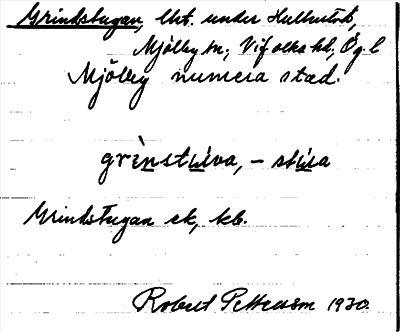 Grindstugan, lht. under Hulterstad,
Mjölby sn; Vifolka hd, Ög. l
Mjölby numera stad.
grìnstùva, – stùa
Grindstugan ek, kb.
Robert Pettersson 1930.